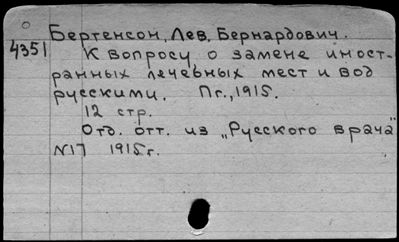 Бертенсон, Лев Бернардович.
4351 К вопросу о замене иност-
ранных лечебных мест и вод
русскими. Пг., 1915.
12 стр.
Отд. отт. из "Русского врача"
№17 1915г.